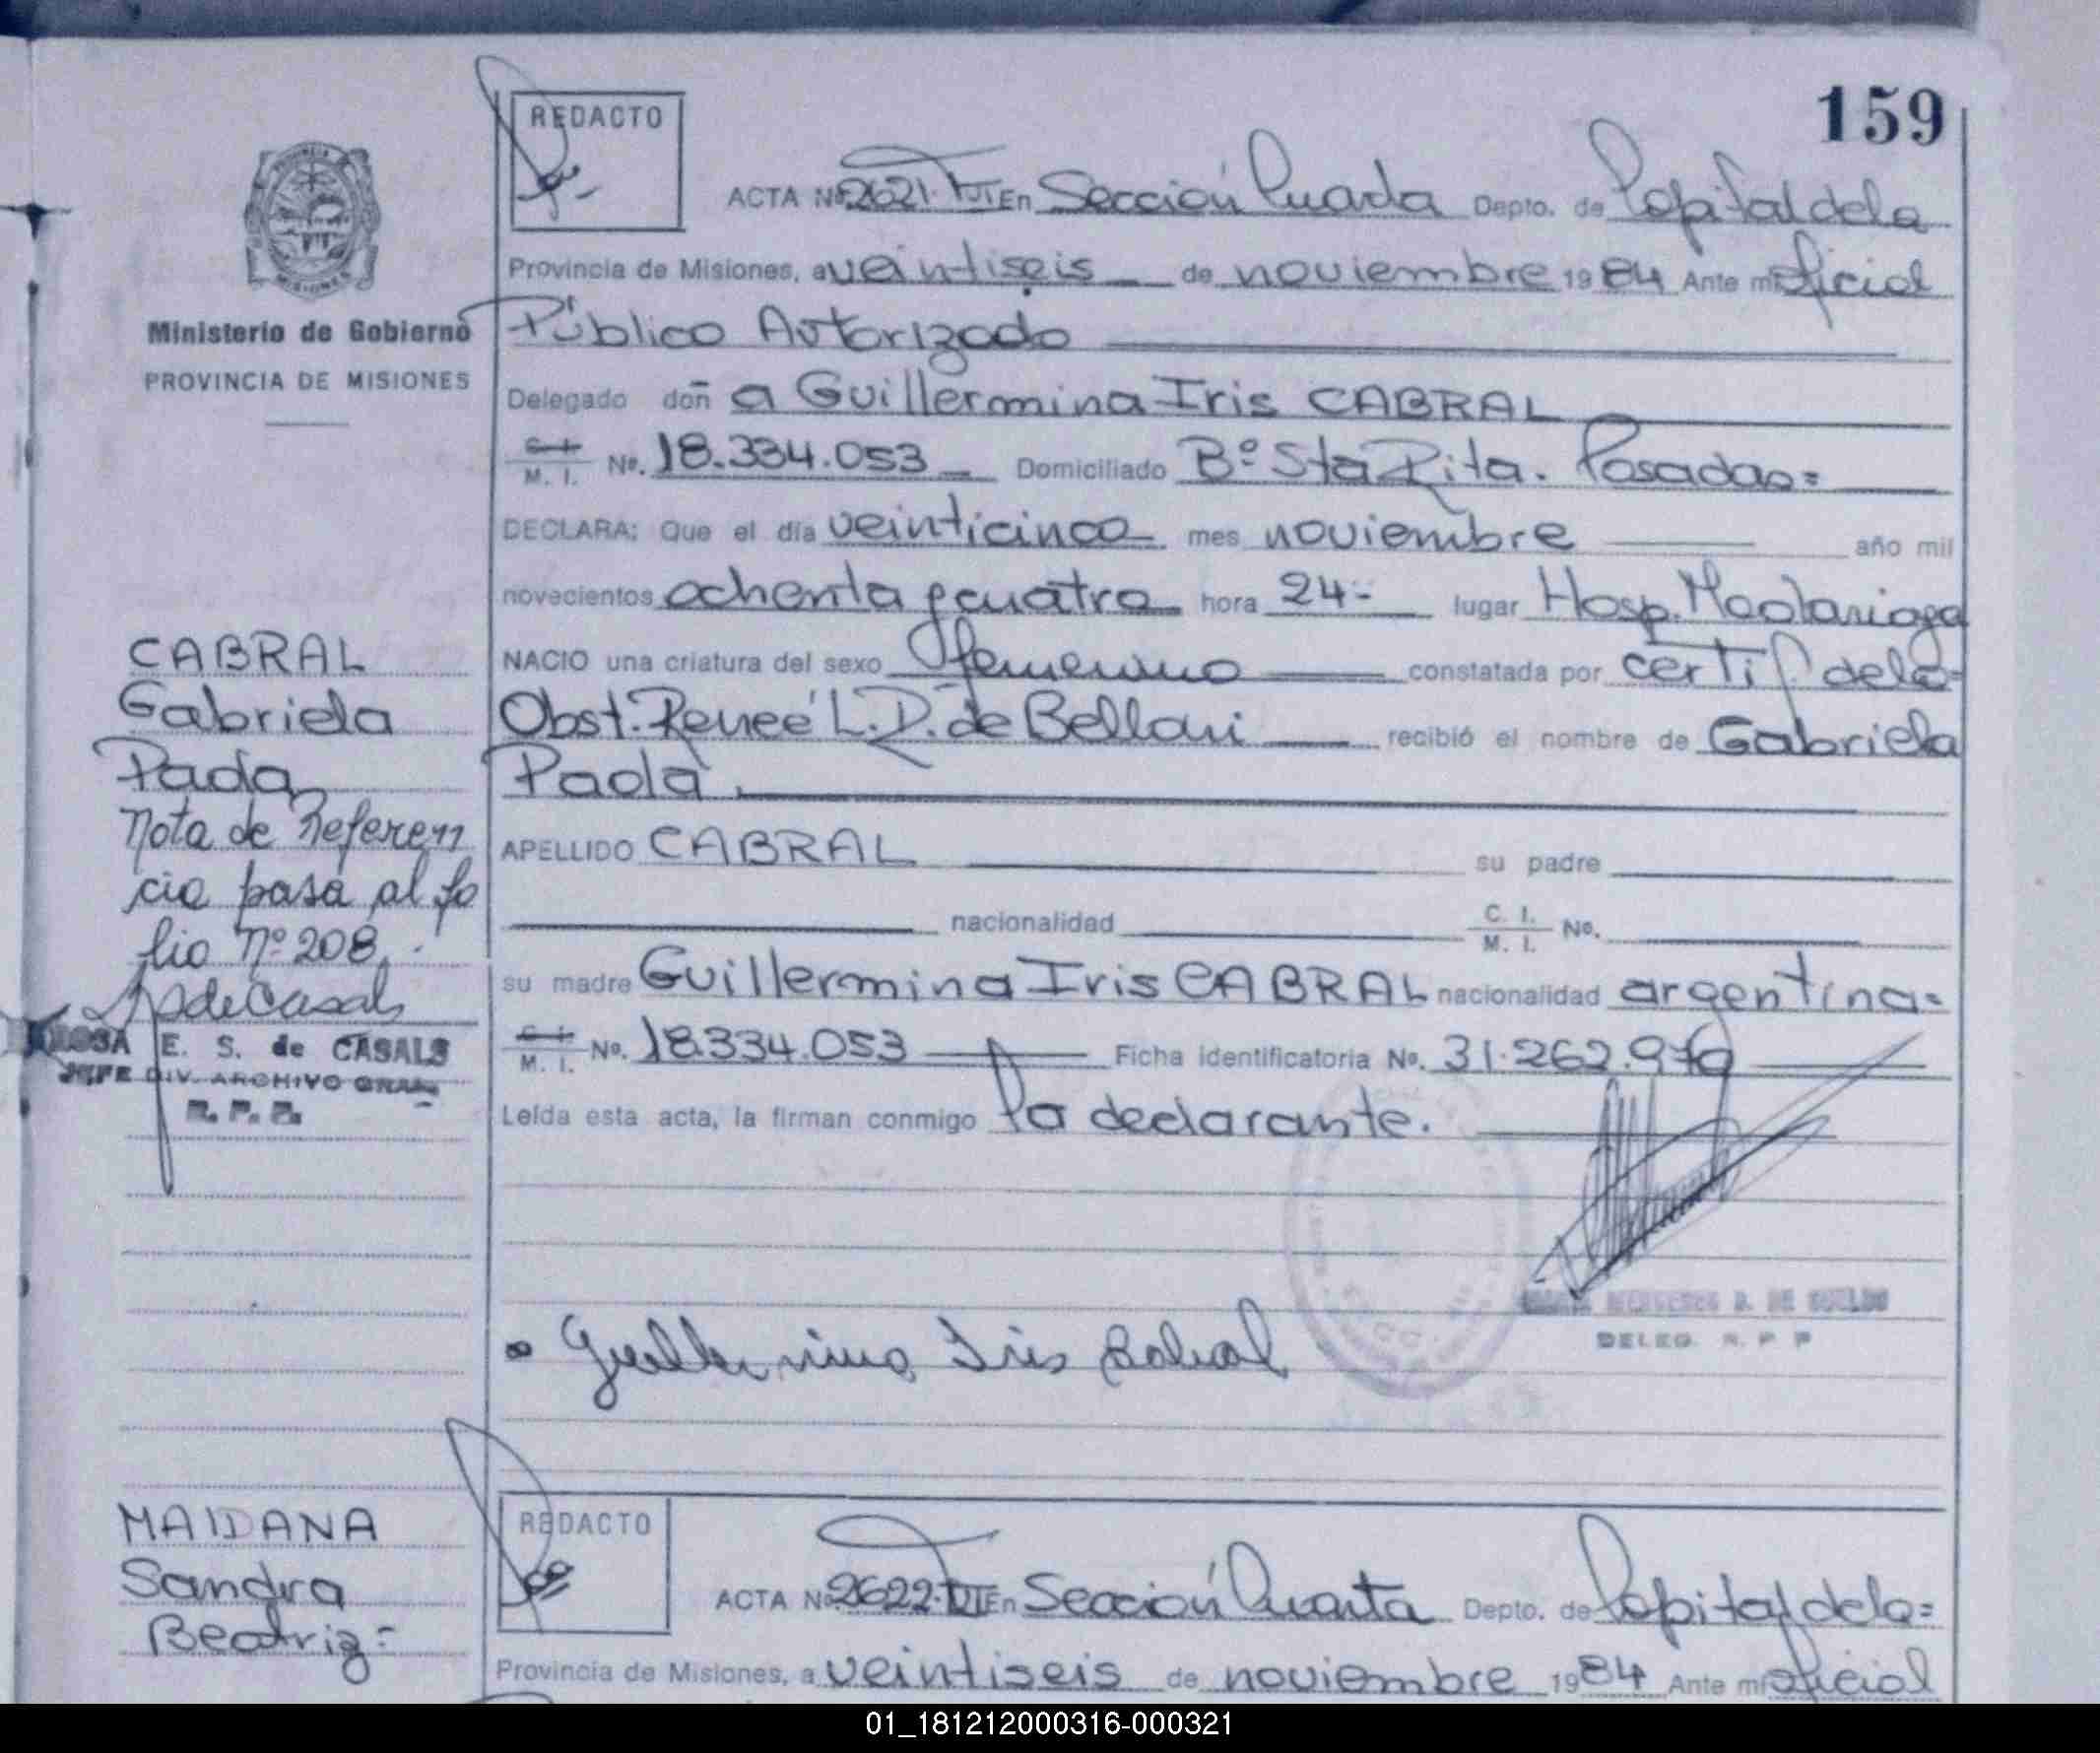 159
REDACTO
ACTA Nº 2621. TVI En Sección Cuarta Depto. de Capital de la
PROVINCIA DE MISIONES
Provincia de Misiones, a veintiseis de noviembre 1984 Ante mi Oficial
Ministerio de Gobierno
PROVINCIA DE MISIONES
Público Autorizado
Delegado doñ a Guillermina Iris CABRAL
C. I. M. I. Nº. 18.334.053 Domiciliado Bº Sta Rita. Posadas=
DECLARA: Que el día veinticinco mes noviembre año mil
novecientos ochenta y cuatro hora 24- lugar Hosp. Madariaga
NACIO una criatura del sexo femenino constatada por certif de la=
Obst. Reneé L. D. de Bellani recibió el nombre de Gabriela
Paola
APELLIDO CABRAL su padre
nacionalidad C. I. M. I. No.
su madre Guillermina Iris CABRAL nacionalidad argentina=
C. I. M. I. No. 18.334.053 Ficha identificatoria No. 31.262.970
Leída esta acta, la firman conmigo la declarante.
CABRAL
Gabriela
Paola
Nota de Referen
cia pasa al fo
lio Nº 208.
SpdeCasals
ROSA E. S. de CASALS
JEFE DIV. ARCHIVO GRAL
R. P. P.
DE SUELDO
DELEG. R. P. P
Guillermina Iris Cabral
MAIDANA
Sandra
Beatriz=
REDACTO
ACTA Nº 2622. TVI En Sección Cuarta Depto. de Capital de la=
Provincia de Misiones, a veintiseis de noviembre 1984 Ante mi oficial
01_181212000316-000321